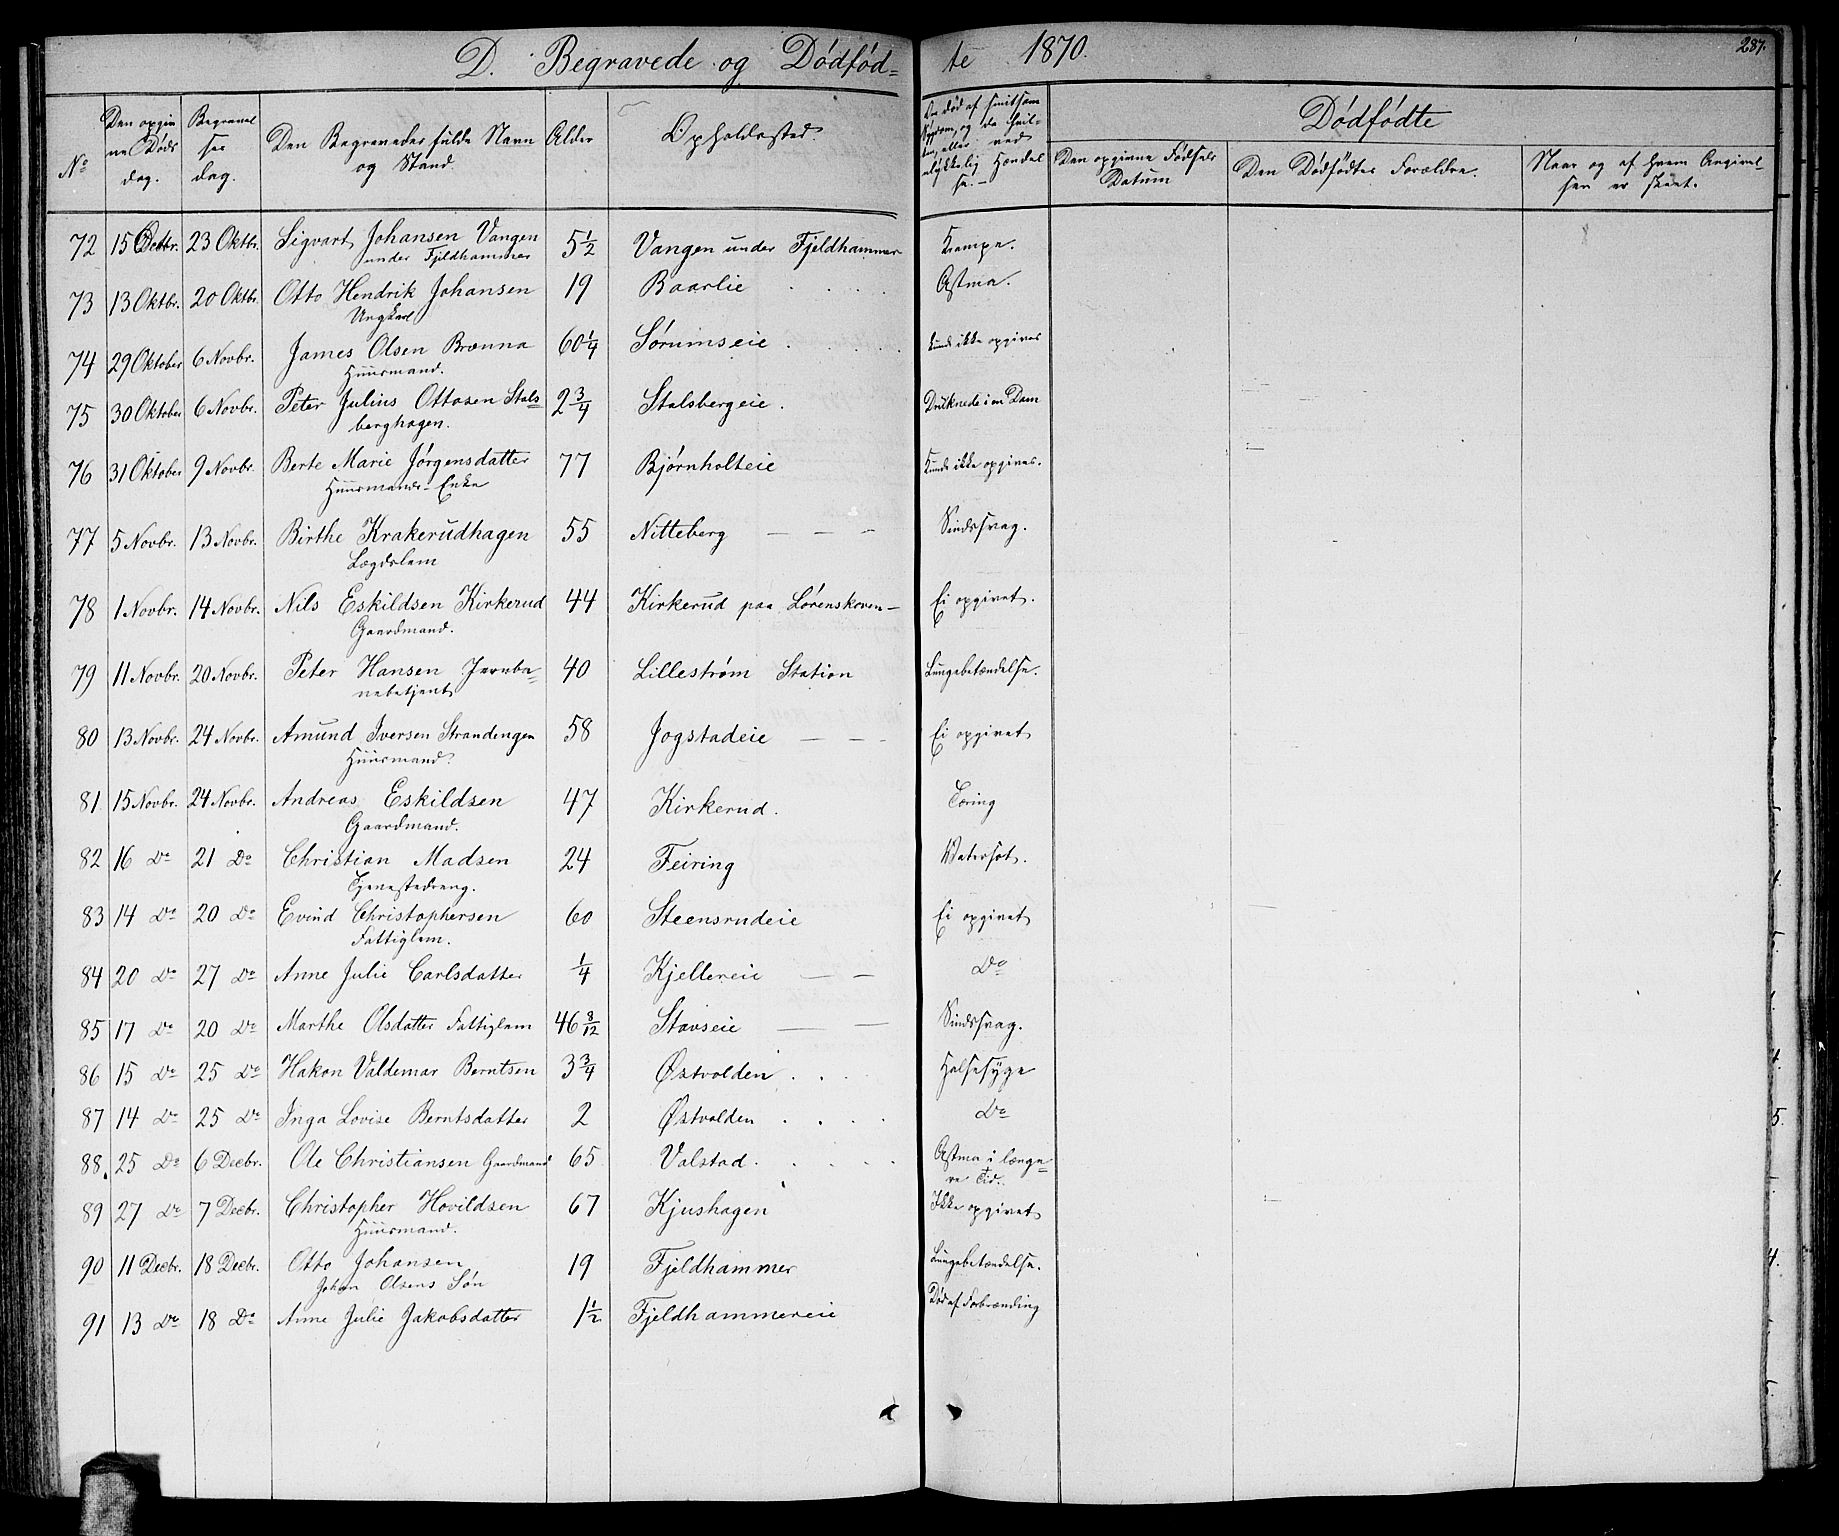 D. Begravede og Dødfød-
te 1870.
287.
No
Den opgiv
ne Døds
dag.
Begravel
ses
dag.
Den Begravedes fulde Navn
og Stand.
Alder
Opholdssted
De død af smitsom
Sygdom, og da hvil-
ken, eller ved
ulykkelig Hændel
se.-
Dødfødte
Den opgivne Fødsels
Datum
Den Dødfødtes Forældre.
Naar og af hvem Angivel-
sen er skeet.
72 15 Octbr. 23 Oktbr. Sigvart Johansen Vangen 5 1/2 Vangen under Fjeldhammer Krampe.
under Fjeldhammer
73 13 Oktbr. 20 Oktbr. Otto Hendrik Johansen 19 Baarlie Astma.
Ungkarl
74 29 Oktober 6 Novbr. James Olsen Brænna 60 1/4 Sørumseie kunde ikke opgives
Huusmand.
75 30 Oktober 6 Novbr. Peter Julius Ottosen Stals= 2 3/4 Stalsbergeie. Druknede i en Dam
berghagen.
76 31 Oktober 9 Novbr. Berte Marie Jørgensdatter 77 Bjørnholteie Kunde ikke opgives.
Huusmands-Enke
77 5 Novbr. 13 Novbr. Birthe Krakerudhagen 55 Nitteberg — — — Sindssvag.
Lægdslem
78 1 Novbr. 14 Novbr. Nils Eskildsen Kirkerud 44 Kirkerud paa Lørenskoven- Ei opgivet.
Gaardmand.
79 11 Novbr. 20 Novbr. Peter Hansen Jernba= 40 Lillestrøm Station Lungebetændelse.
nebetjent
80 13 Novbr. 24 Novbr. Amund Iversen Strandengen 58 Jogstadeie — — — Ei opgivet
Huusmand.
81 15 Novbr. 24 Novbr. Andreas Eskildsen 47 Kirkerud. Tæring
Gaardmand.
82 16 Do 21 Do Christian Madsen 24 Feiring Watersot.
Tjenestedreng.
83 14 Do 20 Do Evind Christophersen 60 Steensrudeie Ei opgivet
Fattiglem.
84 20 Do 27 Do Anne Julie Carlsdatter 1/4 Kjellereie — — Do
85 17 Do 20 Do Marthe Olsdatter Fattiglem 46 8/12 Stavseie — — Sindssvag.
86 15 Do 25 Do Hakon Valdemar Berntsen 3 3/4 Østvolden Halssyge
87 14 Do 25 Do Inga Lovise Berntsdatter 2 Østvolden Do
88. 25 Do 6 Decbr. Ole Christiansen Gaardmand 65 Valstad. Astma i længe=
re Tid.
89 27 Do 7 Decbr. Christopher Hovildsen 67 Kjushagen Ikke opgivet
Huusmand.
90 11 Decbr. 18 Decbr. Otto Johansen 19 Fjeldhammer Lungebetændelse.
Johan Olsens Søn
91 13 Do 18 Do Anne Julie Jakobsdatter 1 1/2 Fjeldhammereie Død af Forbrænding